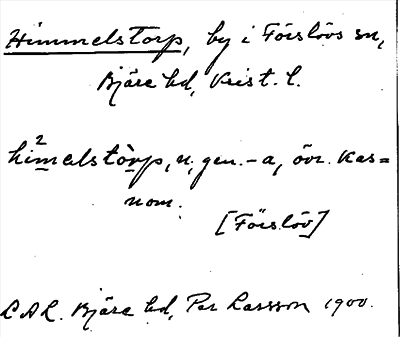 Himmelstorp, by i Förslövs sn,
Bjäre hd, Krist. l.
hi²melstòrp, n, gen. -a, övr. kas=
nom.
[Förslöv]
L.A.L. Bjäre hd, Per Larsson 1900.